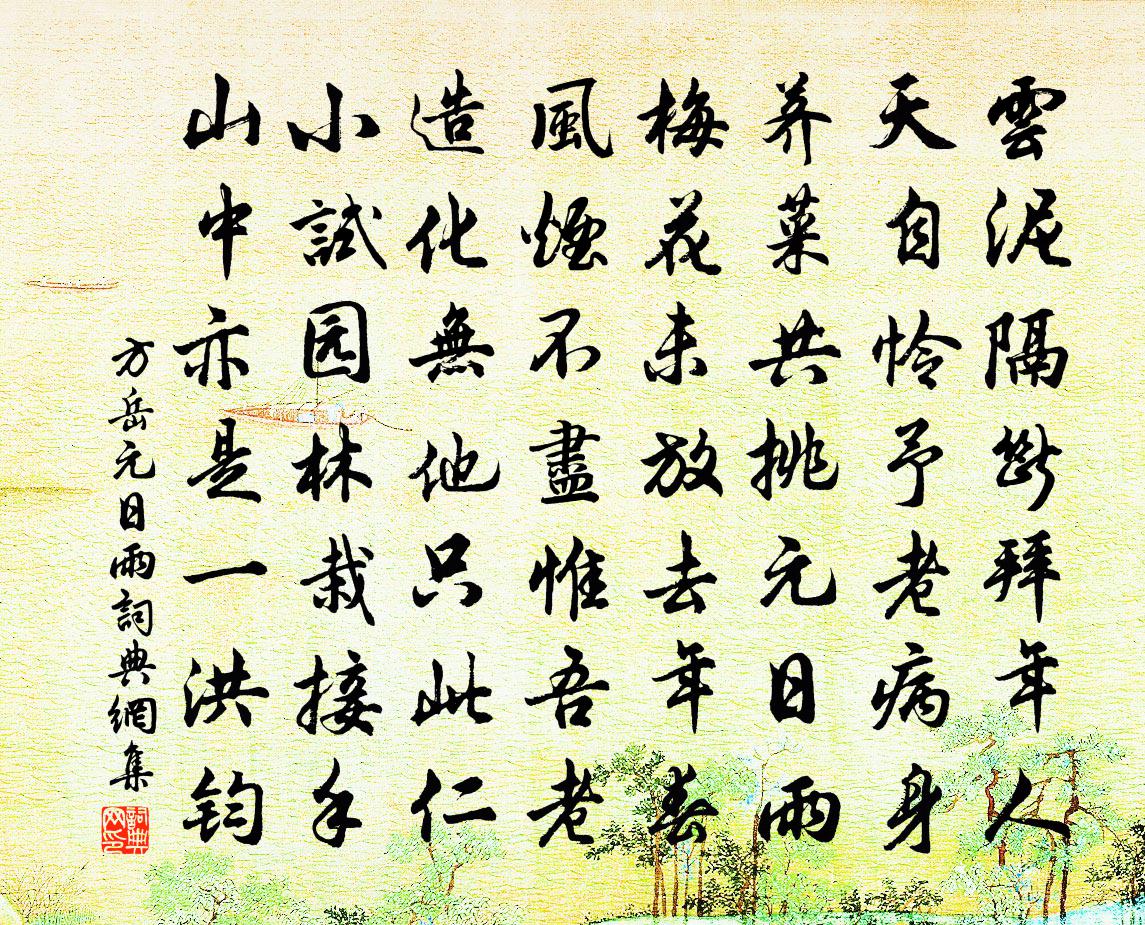 雲泥隔斷拜年人
天自怜予老病身
荠菜共挑元日雨
梅花未放去年春
風煙不盡惟吾老
造化無他只此仁
小試园林栽接手
山中亦是一洪钧
方岳元日雨詞典網集
詞典網印